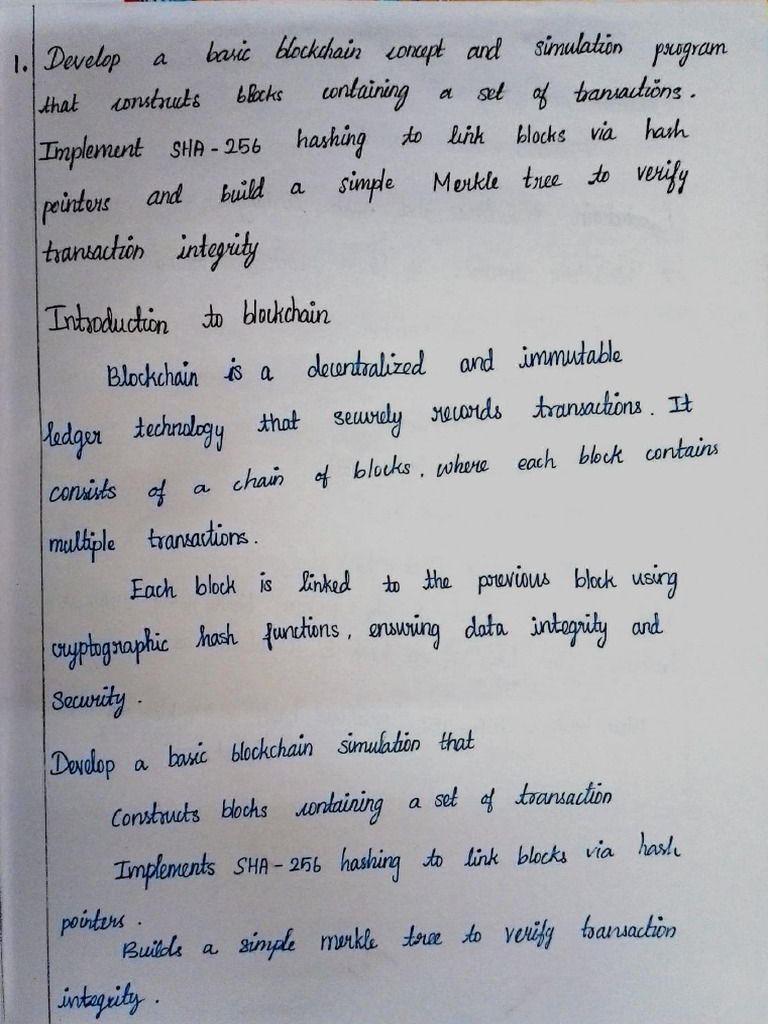 1. Develop a basic blockchain concept and simulation program
that constructs blocks containing a set of transactions.
Implement SHA-256 hashing to link blocks via hash
pointers and build a simple Merkle tree to verify
transaction integrity
Introduction to blockchain
Blockchain is a decentralized and immutable
ledger technology that securely records transactions. It
consists of a chain of blocks, where each block contains
multiple transactions.
Each block is linked to the previous block using
cryptographic hash functions, ensuring data integrity and
Security.
Develop a basic blockchain simulation that
Constructs blocks containing a set of transaction
Implements SHA-256 hashing to link blocks via hash
pointers.
Builds a simple merkle tree to verify transaction
integrity.